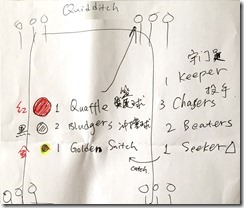 Quidditch
守门员
1 Keeper
红 1 Quaffle 鬼飞球 3 Chasers
黑 2 Bludgers 游走球 2 Beaters
金 1 Golden Snitch 1 Seeker
catch